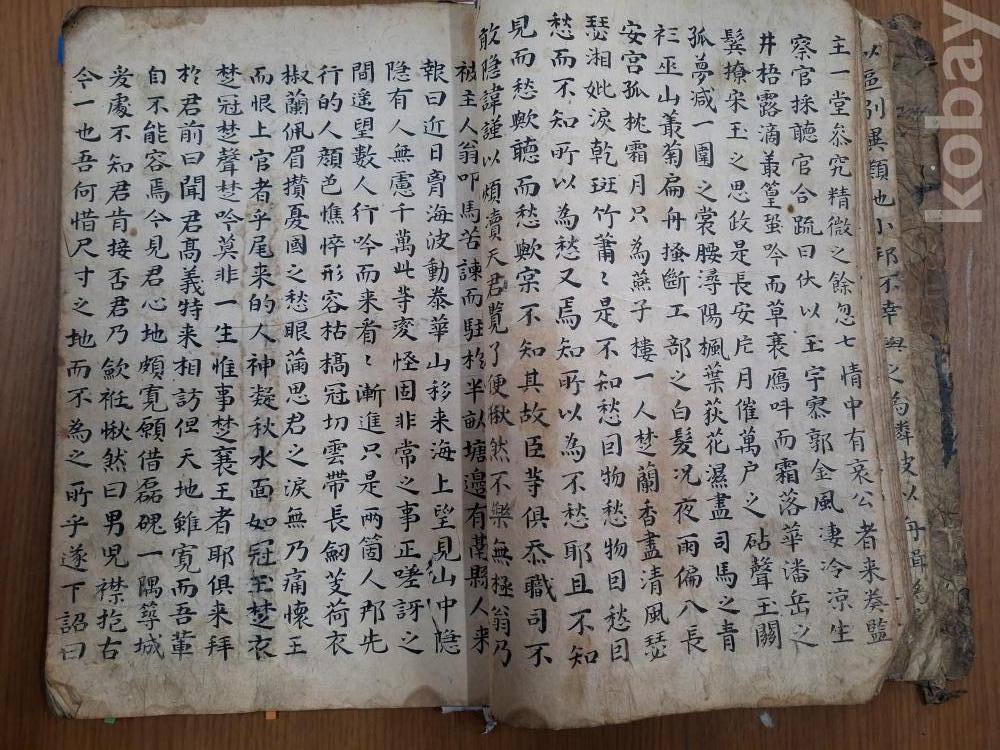 kobay
以區別異類也小邦不幸與之為隣
主一堂叅究精微之餘忽七情中有哀公者来奏監
察官採聽官合疏曰伏以玉宇寥郭金風凄冷凉生
井梧露滴叢篁蛩吟而草衰鴈呌而霜落華潘岳之
鬂撩宋玉之思政是長安片月催萬户之砧聲玉關
孤夢减一圍之裳腰潯陽楓葉荻花濕盡司馬之青
衫巫山叢菊扁舟搔斷工部之白髮况夜雨偏入長
安宮孤枕霜月只為燕子樓一人楚蘭香盡清風瑟
瑟湘妣淚乾斑竹蕭〻是不知愁囙物愁物囙愁囙
愁而不知所以為愁又焉知所以為不愁耶且不知
見而愁歟聽而愁歟宲不知其故臣等俱忝職司不
敢隐諱謹以煩凟天君覧了便愀然不樂無極翁乃
被主人翁叩馬苦諫而駐於半畝塘邊有鬲縣人来
報曰近日脅海波動泰華山移来海上望見山中隐
隐有人無慮千萬此等变怪固非常之事正嗟訝之
間遙望數人行吟而来看〻漸進只是兩箇人那先
行的人顔色憔悴形容枯槁冠切雲帶長劒芰荷衣
椒蘭佩眉攢憂國之愁眼滿思君之淚無乃痛懷王
而恨上官者乎尾来的人神凝秋水面如冠玉楚衣
楚冠楚聲楚吟莫非一生惟事楚襄王者耶俱来拜
於君前曰聞君髙義特来相訪但天地雖寛而吾軰
自不能容焉今見君心地頗寛願借磊磈一隅築城
爰處不知君肯接否君乃歛袵愀然曰男児襟抱古
今一也吾何惜尺寸之地而不為之所乎遂下詔曰